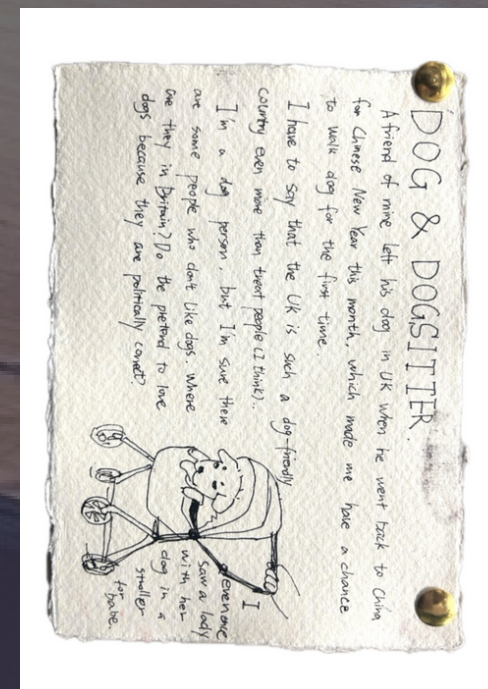 DOG & DOGSITTER.
A friend of mine left his dog in UK when he went back to China
for Chinese New Year this month, which made me have a chance
to walk dog for the first time.
I have to say that the UK is such a dog-friendly
country even more than treat people (I think)..
I'm a dog person, but I'm sure there
are some people who don't like dogs. where
are they in Britain? Do the pretend to love
dogs because they are politically correct?
I
even once
saw a lady
with her
dog in a
stroller
for babe.